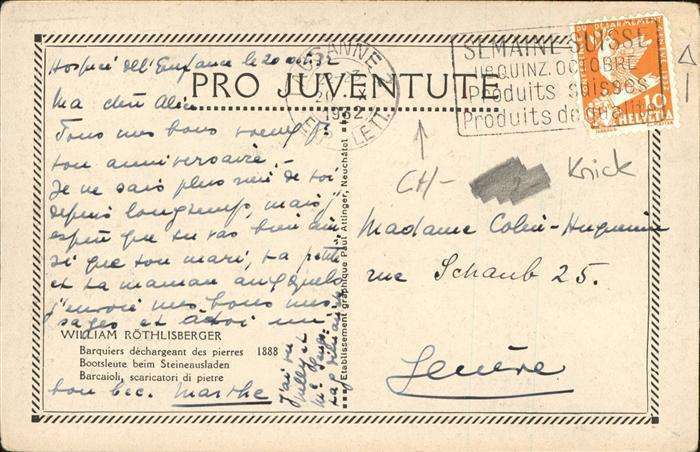 Hospice de l'Enfance le 20 oct. 32
PRO JUVENTUTE
Ma chère Alice
Tous mes bons voeux pr
ton anniversaire.
Je ne sais plus rien de toi
depuis longtemps, mais j'
espère que tu vas bien ain
si que ton mari, ta petite
et ta maman auxquels
j'envoie mes bons mes
sages et à toi un
WILLIAM RÖTHLISBERGER
Barquiers déchargeant des pierres 1888
Bootsleute beim Steineausladen
Barcaioli, scaricatori di pietre
bon bec. Marthe
J'ai vu
et
Etablissement graphique Paul Attinger, Neuchâtel
LAUSANNE
1932
EXP. LETT.
SEMAINE SUISSE
QUINZ. OCTOBRE
Produits suisses
Produits de qualité
10
HELVETIA
CH-
Knick
Madame Colin-Huguenin
rue Schaub 25.
Genève